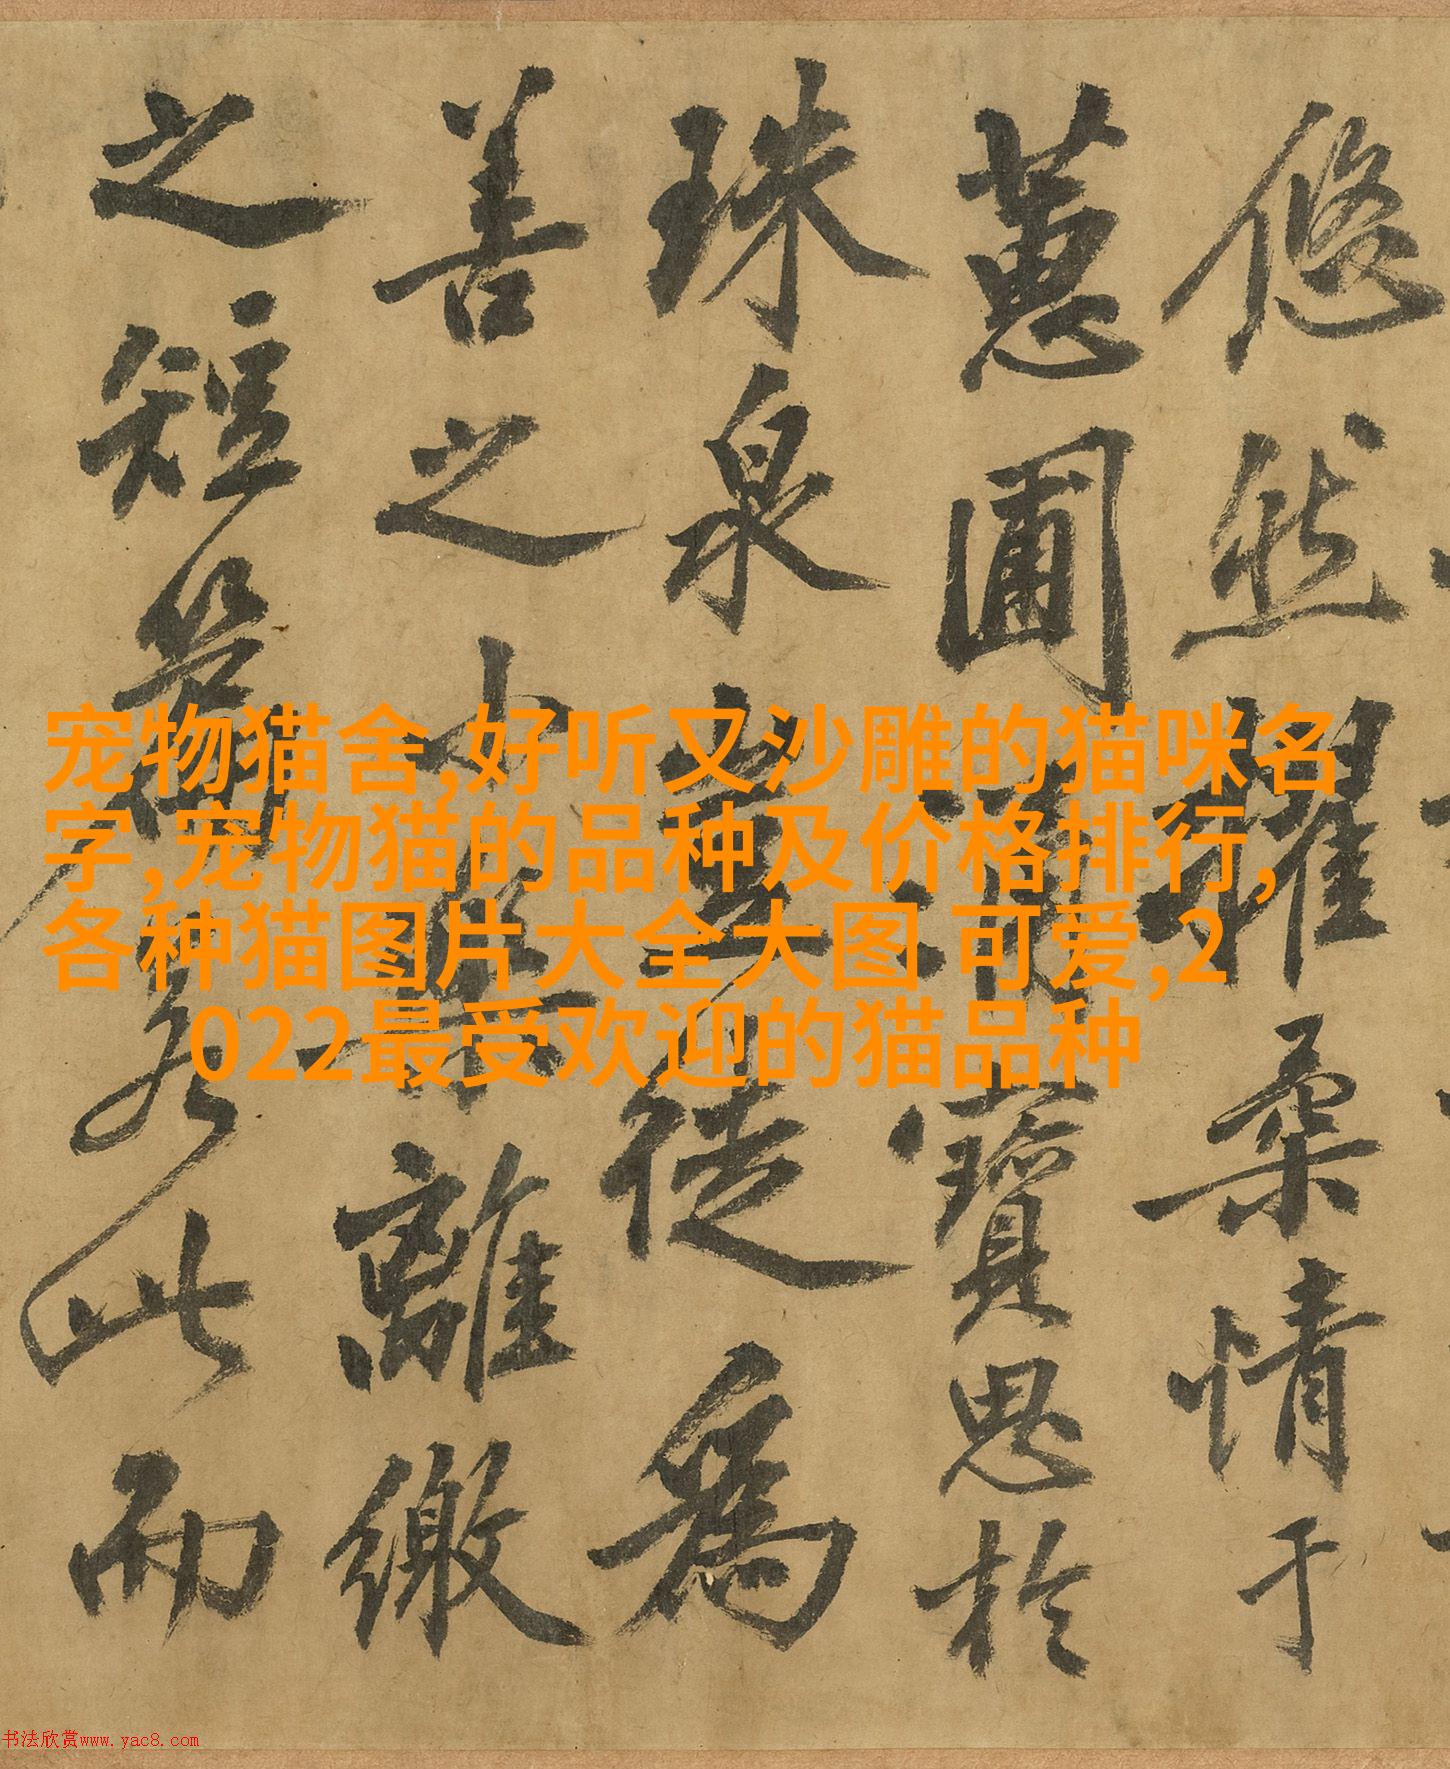 悠然擢柔情于
蕙圃涌寶思於
珠泉豈徒爲
善之小無離繳
之短若斯而
宠物猫舍,好听又沙雕的猫咪名
字,宠物猫的品种及价格排行,
各种猫图片大全大图 可爱,2
022最受欢迎的猫品种
书法欣赏www.yac8.com